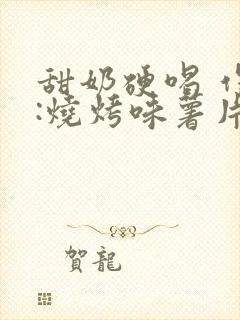 甜奶硬唱
:燒烤味薯片
賀龍